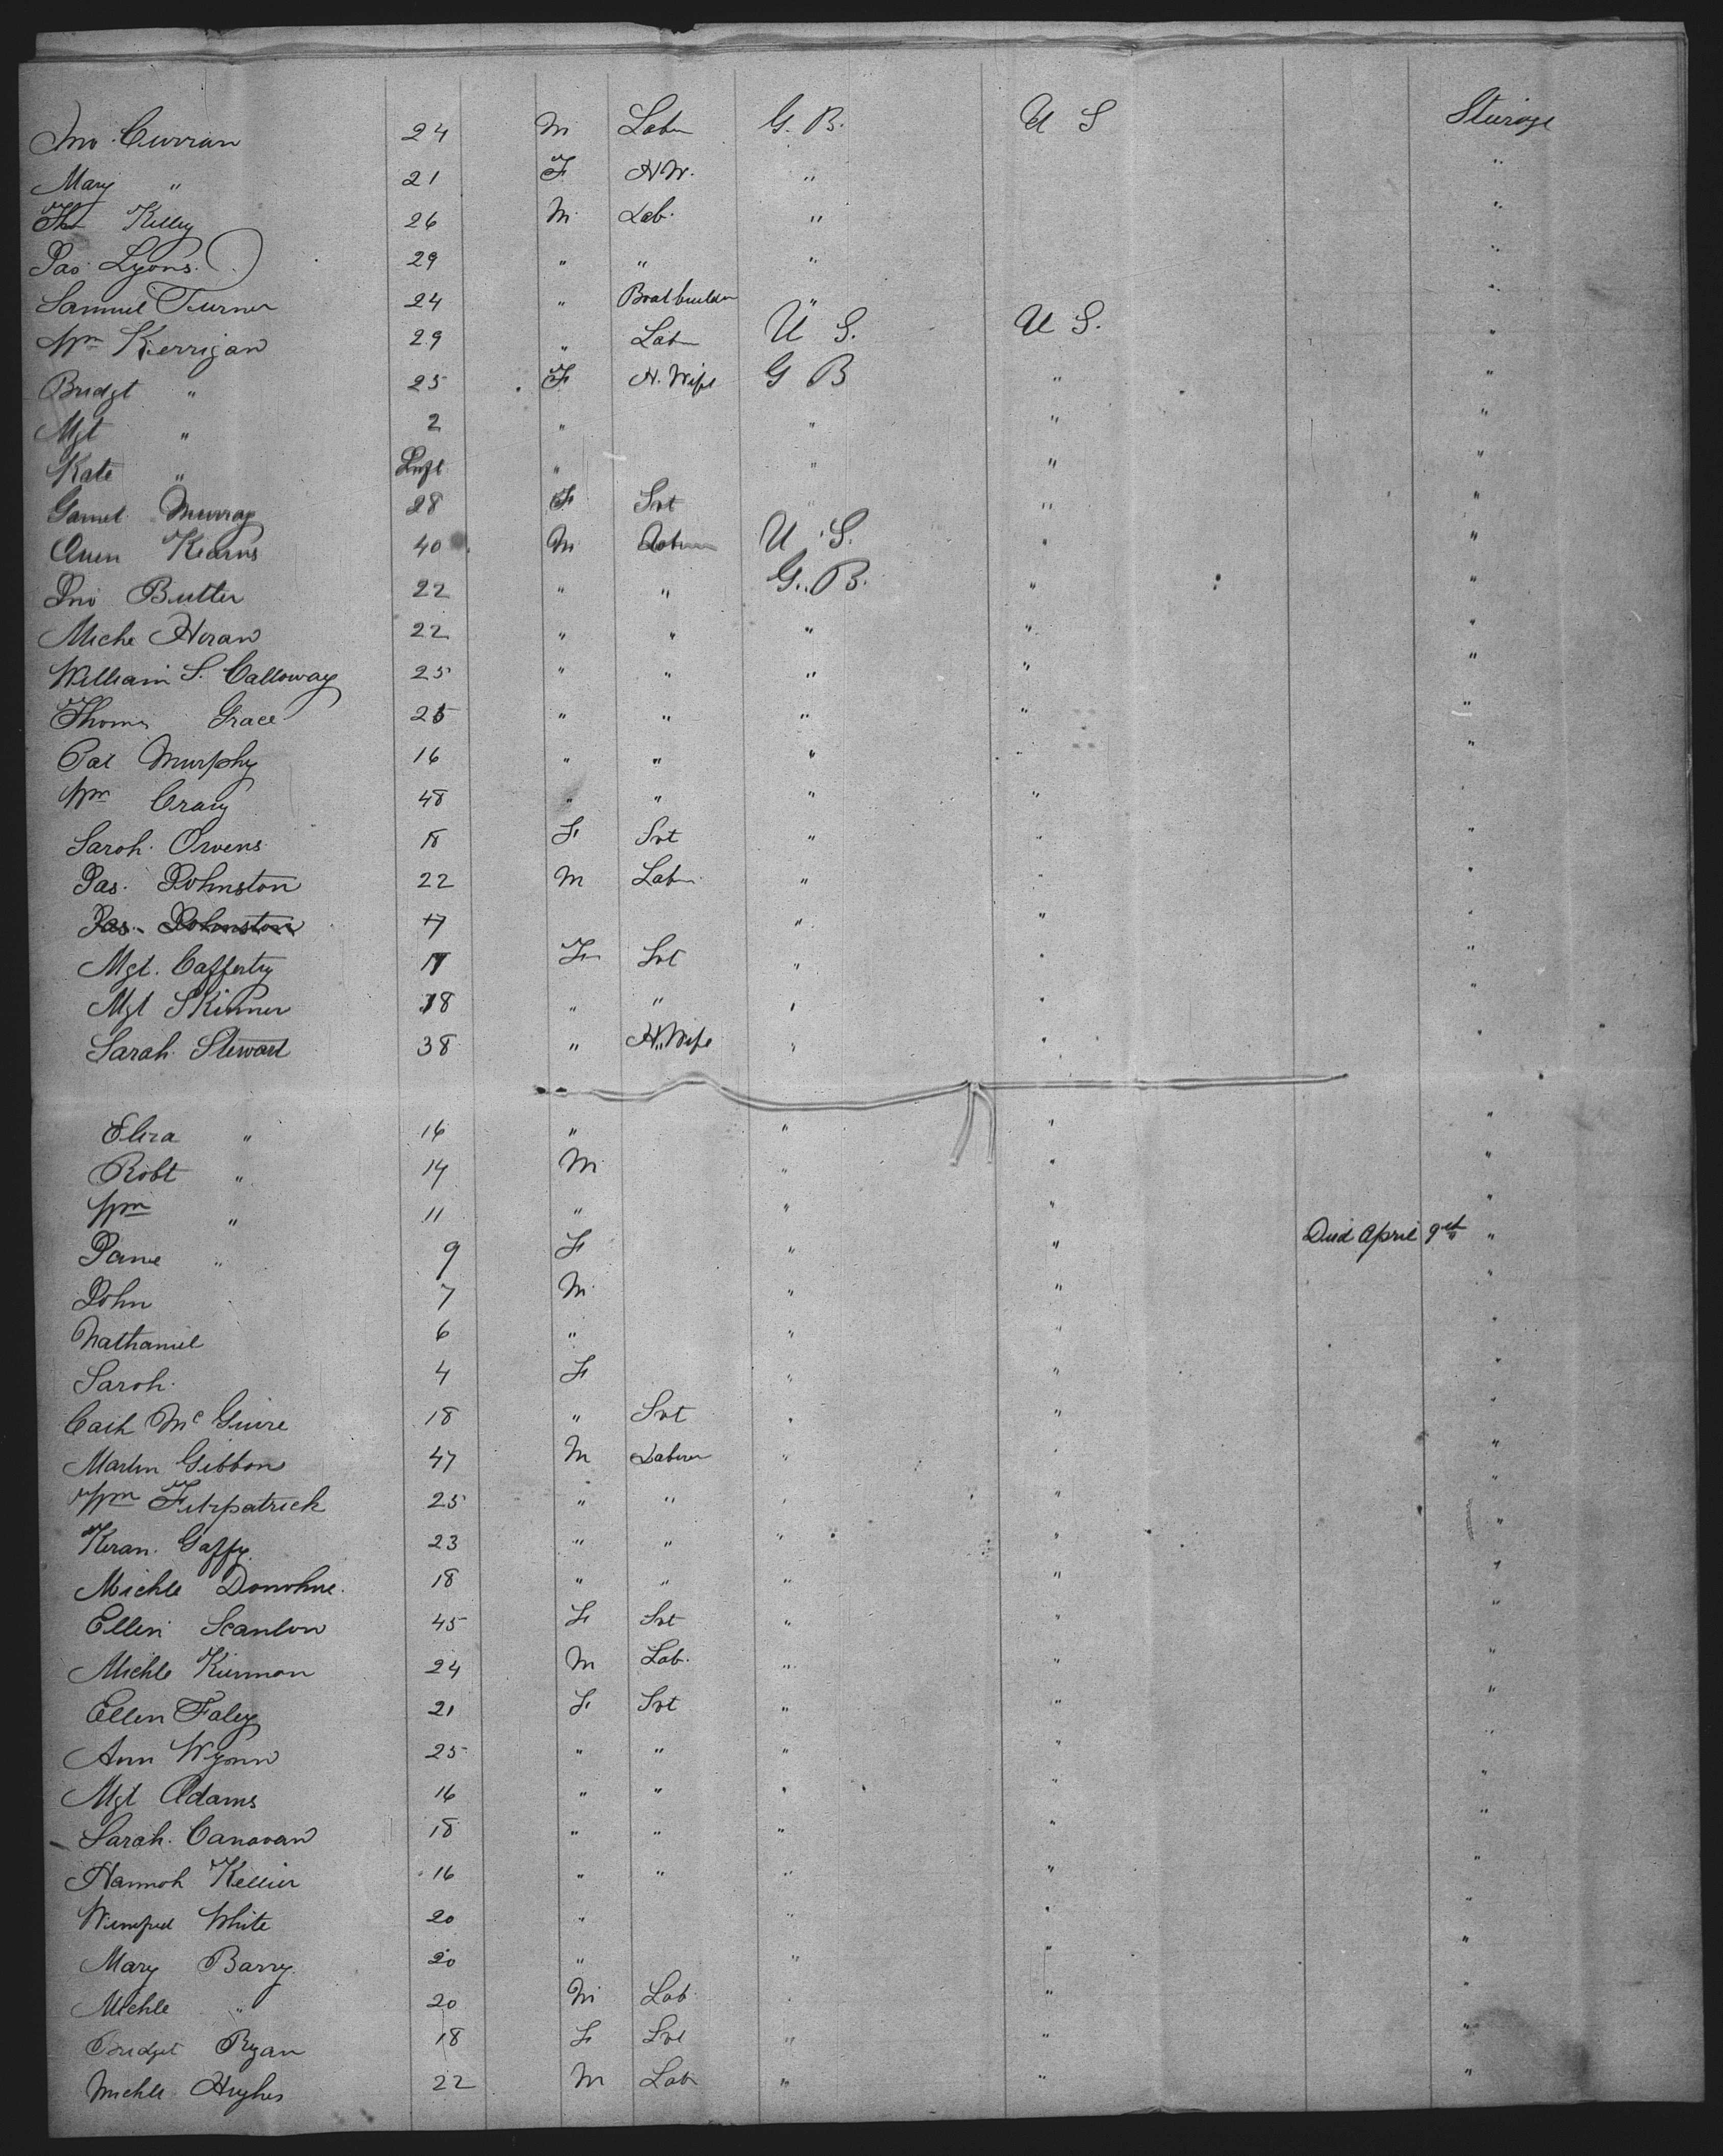 Jno. Curran 24 M Labr G. B. U S Steirage
Mary " 21 F H W. " "
Ths Killey 26 M. Lab. " "
Jas. Lyons. 29 " " " "
Samuel Turner 24 " Boatbuilder " "
Wm Kerrigan 29 " Labr U S. U S. "
Bridgt " 25 F H. Wife G B " "
Mgt " 2 " " " "
Kate " Inft " " " "
Murray 28 F Svt " "
Owen Kearns 40 M Labr U. S. " "
Jno Butler 22 " " G. B. " "
Michl Horan 22 " " " " "
William S. Calloway 25 " " " " "
Thomas Grace 25 " " " " "
Pat Murphy 16 " " " " "
Wm Craig 48 " " " "
Sarah. Owens 18 F Svt " " "
Jas. Johnston 22 M Labr. " " "
Jas. Johnston 17 " " "
Mgt. Cafferty 17 F Svt " " "
Mgt Skinner 18 " " " " "
Sarah. Stewart 38 " H. Wife " " "
Eliza " 16 " " " "
Robt " 14 M " " "
Wm " 11 " " " "
Jane " 9 F " " Died April 9th "
John 7 M. " " "
Nathaniel 6 " " " "
Sarah. 4 F " " "
Cath McGuire 18 " Svt " " "
Martin Gibbons 47 M Laborer " " "
Wm Fitzpatrick 25 " " " " "
Keran. Gaffy 23 " " " "
Michle Donohue. 18 " " " " "
Ellen Scanlon 45 F Svt " " "
Michle Kiernan 24 M Lab. " " "
Ellen Faley 21 F Svt " " "
Ann Wynn 25 " " " " "
Mgt Adams 16 " " " " "
Sarah. Canavan 18 " " " " "
Hannah 16 " " " " "
Winefred White 20 " " " "
Mary Barry. 20 " " " "
Michle " 20 M Lab " " "
Bridget Ryan 18 F Svt " " "
Michle Hughes 22 M Lab " " "